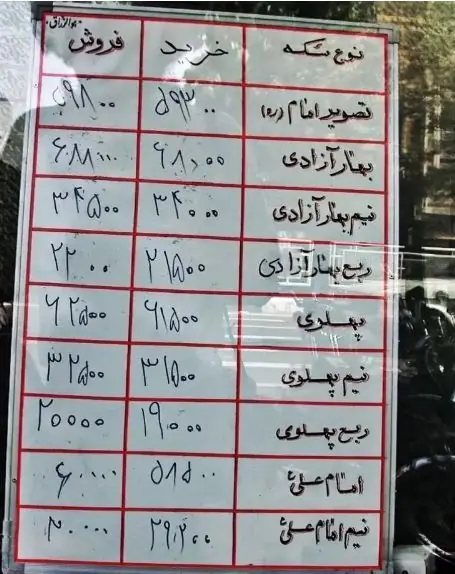 هوالرزاق
نوع سکه خرید فروش
تصویر امام (ره) ۵۹۳۰۰ ۵۹۸۰۰
بهار آزادی ۶۸۰۰۰
نیم بهار آزادی ۳۴۰۰۰ ۳۴۵۰۰
ربع بهار آزادی ۲۱۵۰۰ ۲۲۰۰۰
پهلوی ۶۱۵۰۰ ۶۲۵۰۰
نیم پهلوی ۳۱۵۰۰ ۳۲۵۰۰
ربع پهلوی ۱۹۰۰۰ ۲۰۰۰۰
امام علی ۵۸۵۰۰ ۶۰۰۰۰
نیم امام علی ۲۹۲۰۰ ۳۰۰۰۰